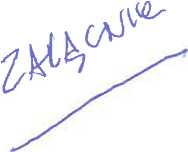 ZAŁĄCNIK